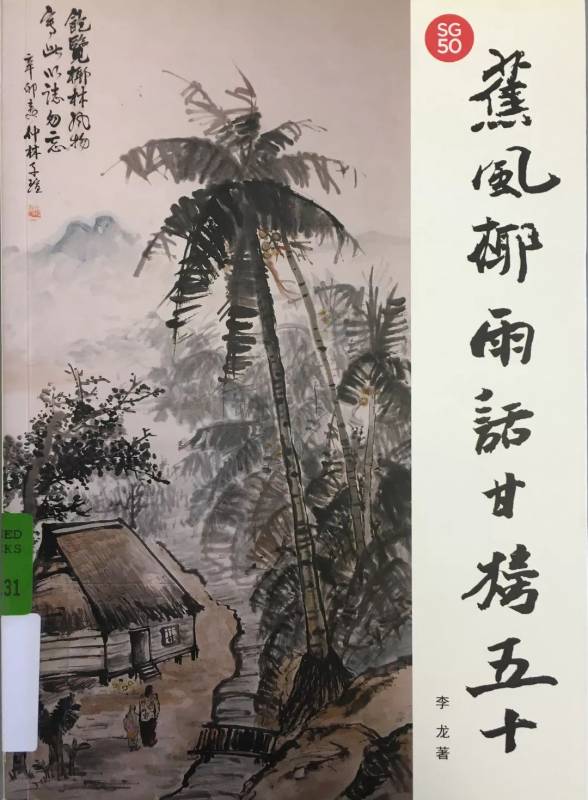 SG
50
蕉風椰雨話甘榜五十
李 龙 著
飽覽椰林風物
寫此以誌勿忘
辛卯 仲林子
ED
KS
31